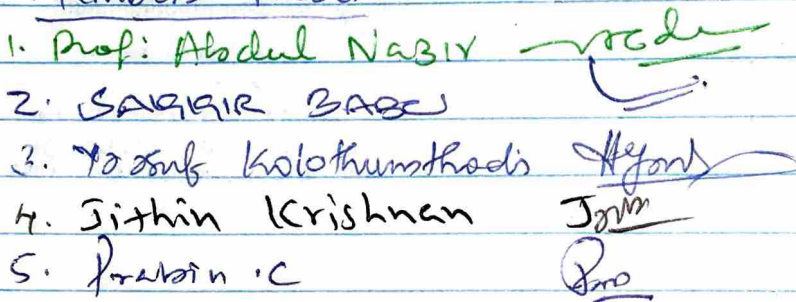 1. Prof: Abdul Nazir
2. SAGGIR BABU
3. Yoosuf Kolothumthodi
4. Jithin Krishnan
5. Prabin .C